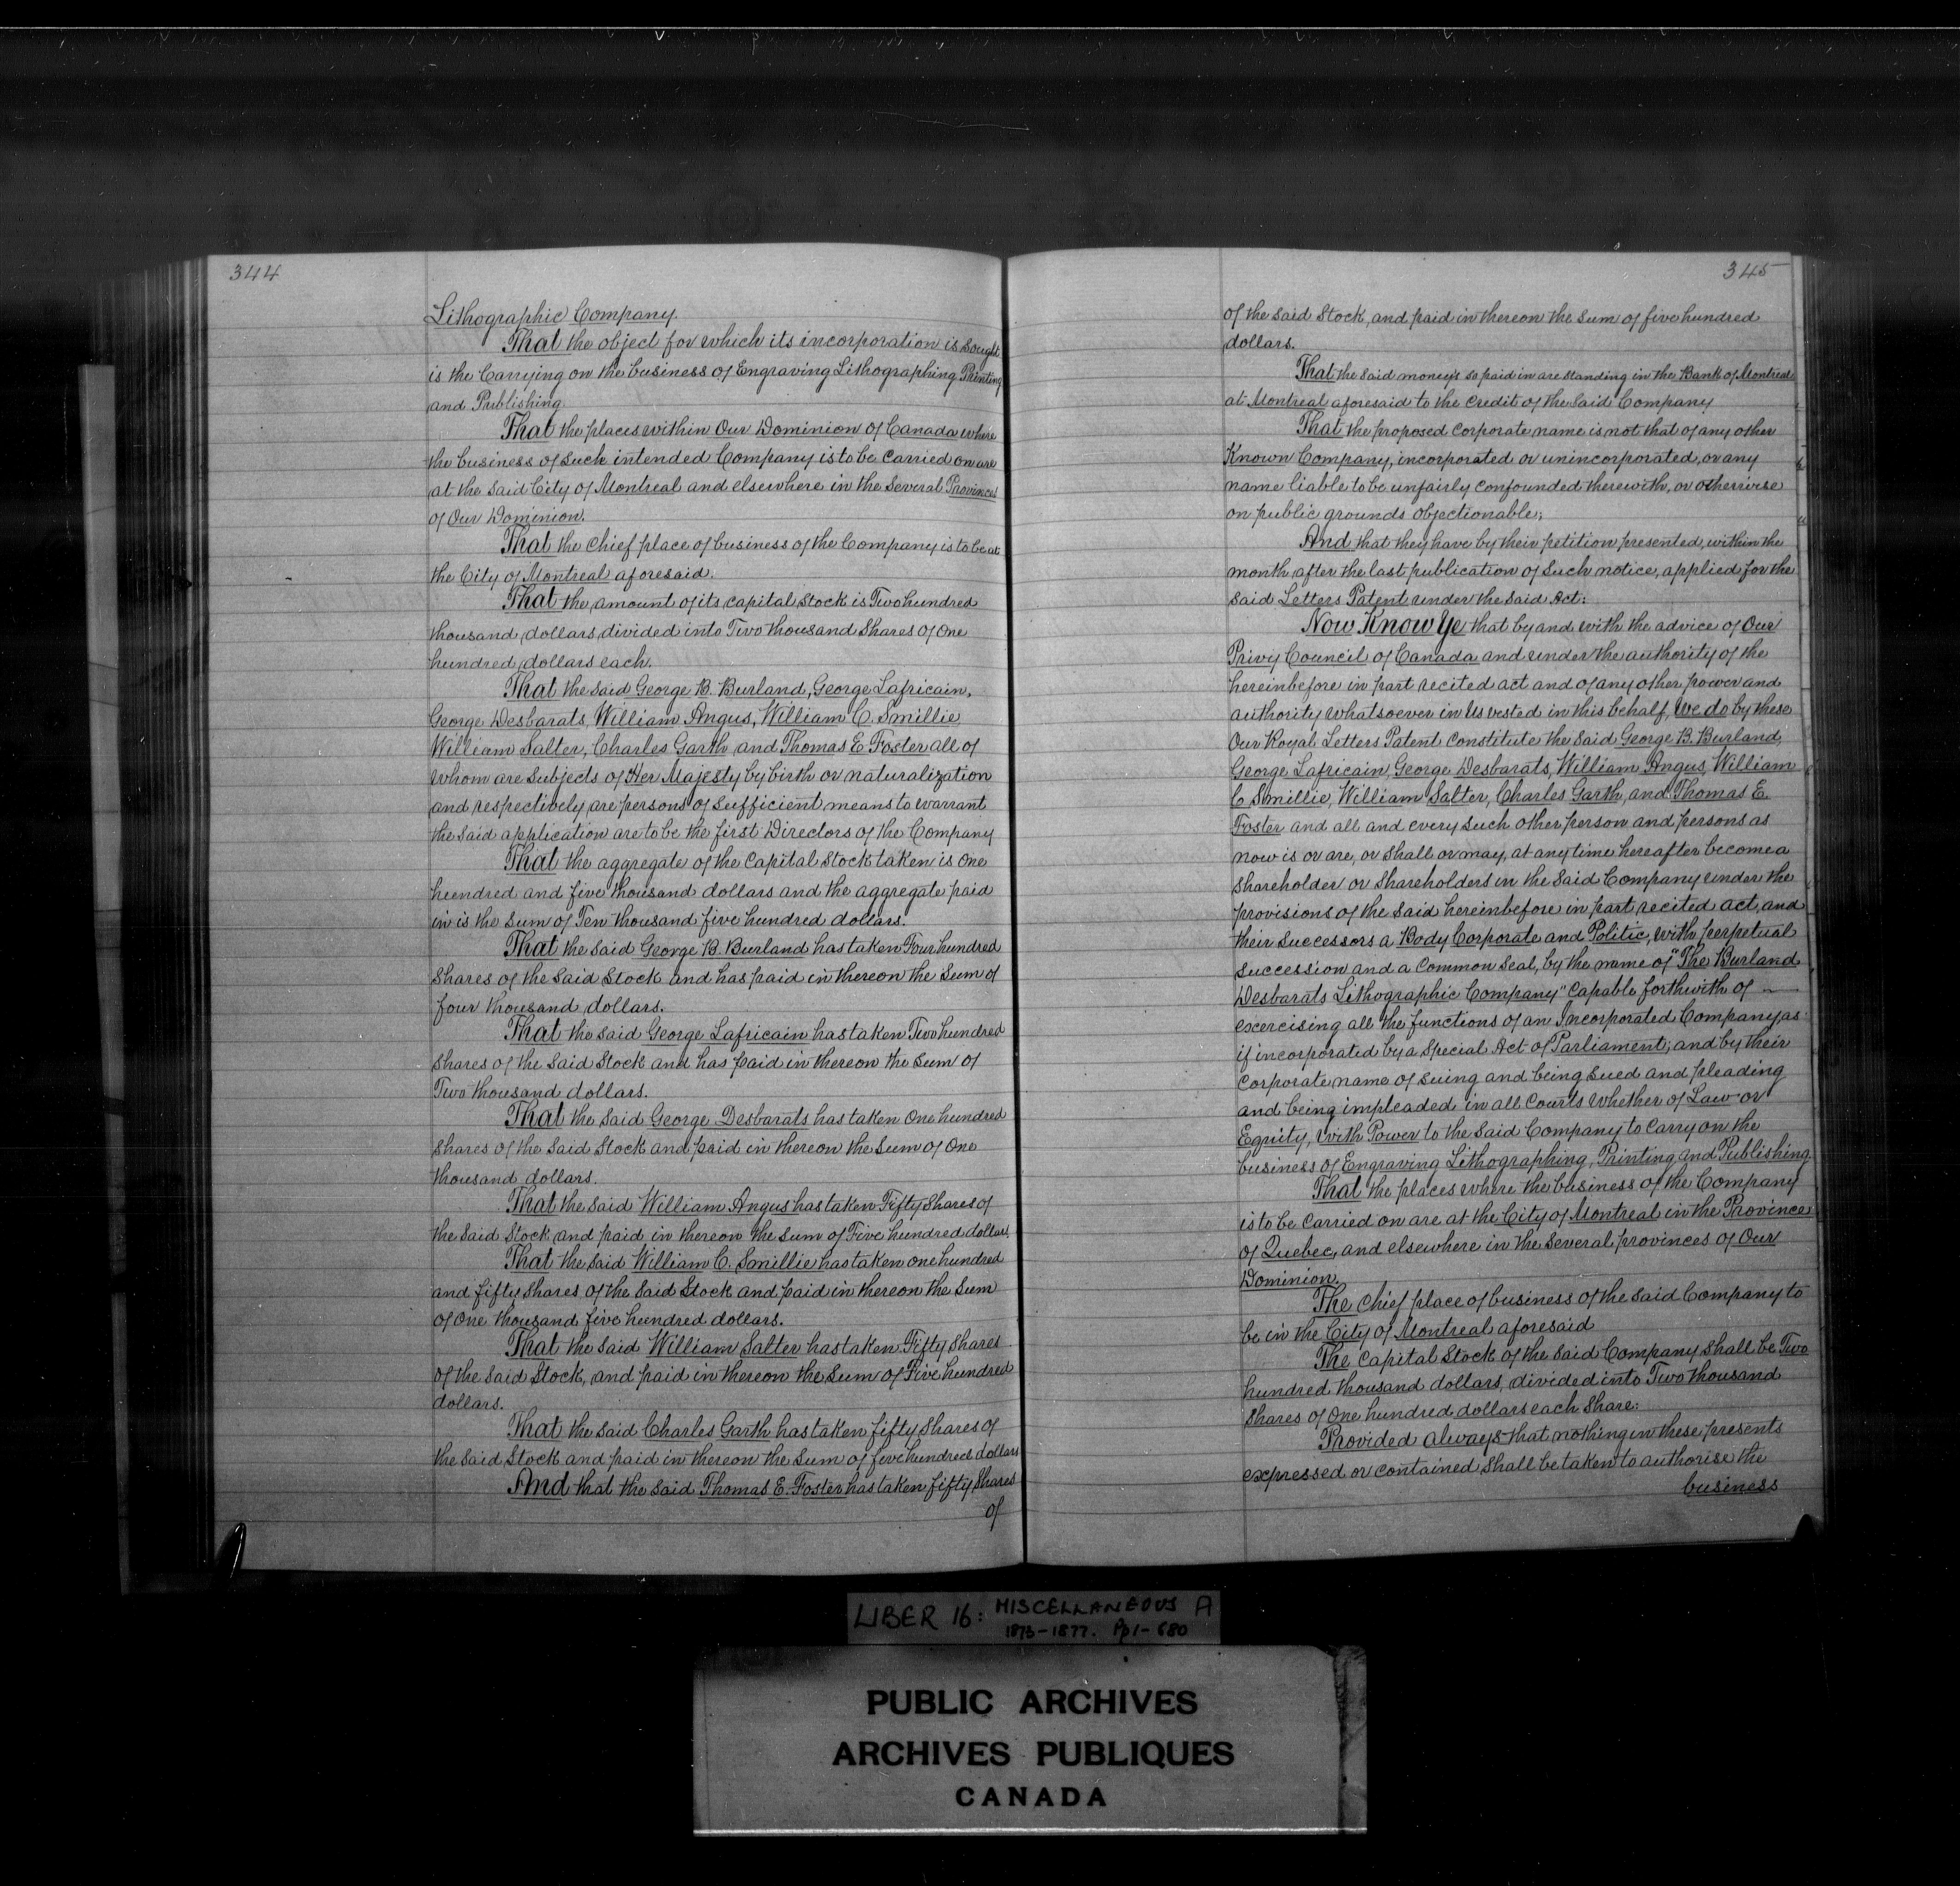 344
Lithographic Company.
That the object for which its incorporation is sought
is the Carrying on the business of Engraving Lithographing Printing
and Publishing
That the places within Our Dominion of Canada where
the business of such intended Company is to be carried on are
at the said City of Montreal and elsewhere in the several Provinces
of Our Dominion.
That the Chief place of business of the Company is to be at
the City of Montreal aforesaid.
That the amount of its capital Stock is Two hundred
thousand dollars, divided into Two thousand Shares of One
hundred dollars each.
That the said George B. Burland, George Lafricain,
George Desbarats, William Angus, William C. Smillie
William Salter, Charles Garth and Thomas E. Foster all of
whom are Subjects of Her Majesty by birth or naturalization
and respectively are persons of sufficient means to warrant
the said application are to be the first Directors of the Company
That the aggregate of the Capital Stock taken is One
hundred and five thousand dollars and the aggregate paid
in is the Sum of Ten thousand five hundred dollars.
That the said George B. Burland has taken Four hundred
Shares of the said Stock and has paid in thereon the Sum of
four thousand dollars.
That the said George Lafricain has taken Two hundred
Shares of the said Stock and has paid in thereon the Sum of
Two thousand dollars.
That the said George Desbarats has taken One hundred
Shares of the said Stock and paid in thereon the Sum of One
thousand dollars.
That the said William Angus has taken Fifty Shares of
the said Stock and paid in thereon the sum of Five hundred dollars.
That the said William C. Smillie has taken one hundred
and fifty Shares of the said Stock and paid in thereon the Sum
of One thousand five hundred dollars.
That the said William Salter has taken Fifty Shares
of the said Stock, and paid in thereon the Sum of Five hundred
dollars.
That the said Charles Garth has taken fifty Shares of
the said Stock and paid in thereon the Sum of five hundred dollars
And that the said Thomas E. Foster has taken fifty Shares
of
345
of the said Stock, and paid in thereon the Sum of five hundred
dollars.
That the said moneys so paid in are standing in the Bank of Montreal
at Montreal aforesaid to the Credit of the said Company
That the proposed Corporate name is not that of any other
Known Company, incorporated or unincorporated, or any
name liable to be unfairly confounded therewith, or otherwise
on public grounds objectionable;
And that they have by their petition presented, within the
month after the last publication of such notice, applied for the
said Letters Patent under the said Act:
Now Know Ye that by and with the advice of Our
Privy Council of Canada and under the authority of the
hereinbefore in part recited act and of any other power and
authority whatsoever in Us vested in this behalf, We do by these
Our Royal Letters Patent Constitute the said George B. Burland,
George Lafricain, George Desbarats, William Angus, William
C Smillie, William Salter, Charles Garth, and Thomas E.
Foster and all and every such other person and persons as
now is or are, or shall or may, at any time hereafter become a
shareholder or shareholders in the said Company under the
provisions of the said hereinbefore in part recited act, and
their successors a Body Corporate and Politic, with perpetual
succession and a Common Seal, by the name of "The Burland
Desbarats Lithographic Company" capable forthwith of
excercising all the functions of an Incorporated Company, as
if incorporated by a Special Act of Parliament; and by their
corporate name of suing and being sued and pleading
and being impleaded in all Courts whether of Law or
Equity, with Power to the said Company to carry on the
business of Engraving Lithographing, Printing and Publishing
That the places where the business of the Company
is to be carried on are at the City of Montreal in the Province
of Quebec, and elsewhere in the several provinces of Our
Dominion.
The Chief place of business of the said Company to
be in the City of Montreal aforesaid
The Capital Stock of the said Company shall be Two
hundred thousand dollars, divided into Two thousand
Shares of One hundred dollars each Share:
Provided always that nothing in these presents
expressed or contained shall be taken to authorise the
business
LIBER 16: MISCELLANEOUS A
1873-1877. Pp 1-680
PUBLIC ARCHIVES
ARCHIVES PUBLIQUES
CANADA